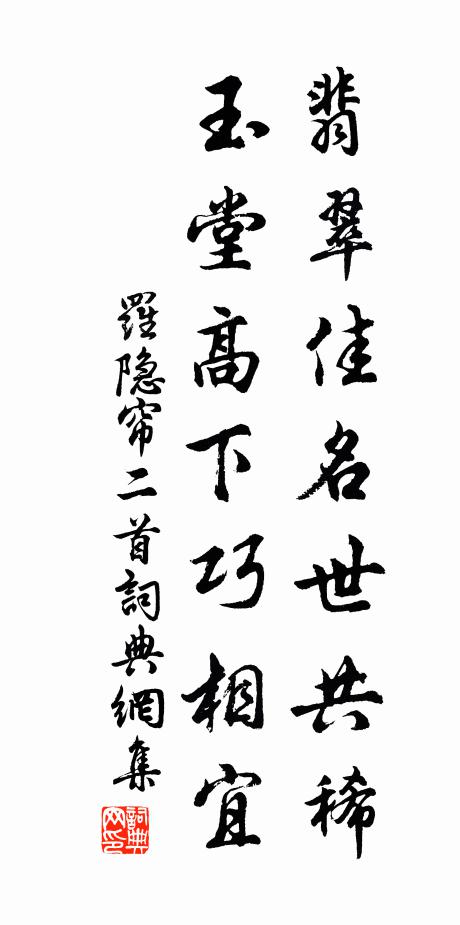 翡翠佳名世共稀
玉堂高下巧相宜
羅隐帘二首詞典網集
詞典网印